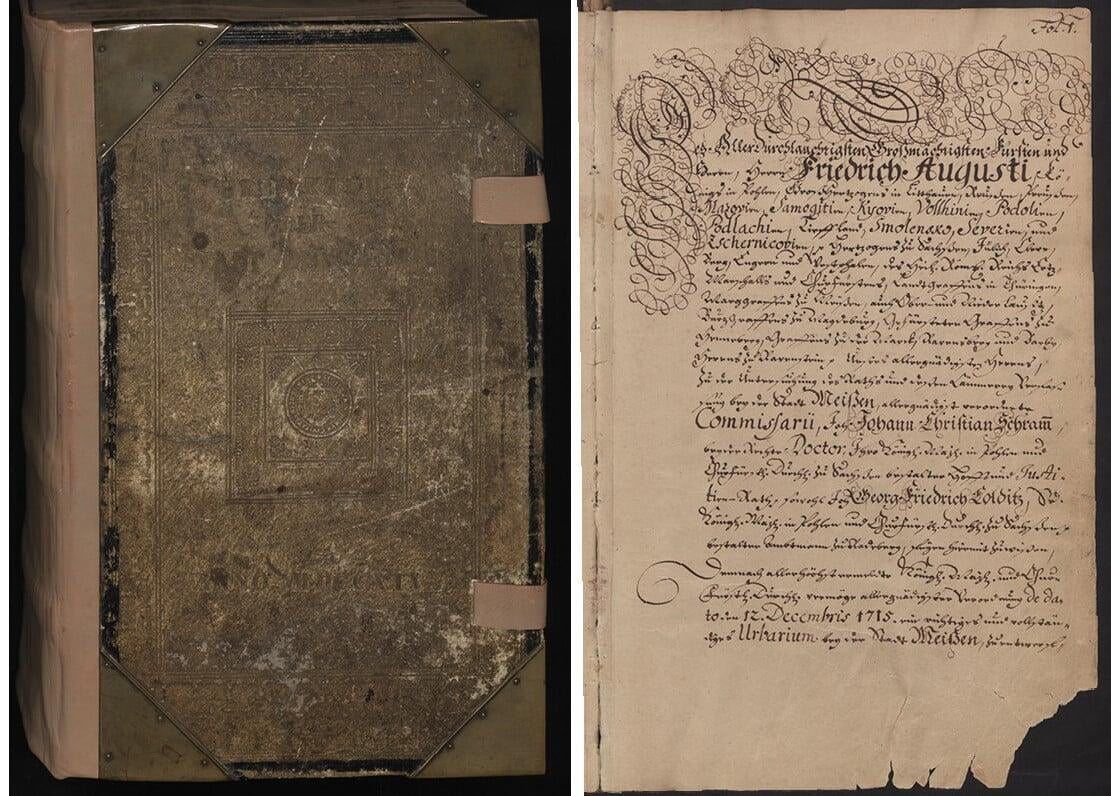 Fol. 1.
Allerdurchlauchtigsten Großmächtigsten Fürsten und
Herrn, Herrn Friedrich Augusti, Kö-
nigs in Pohlen, Groß-Hertzogens in Litthauen, Reußen, Preußen,
Mazovien, Samogitien, Kyovien, Vollhinien, Podolien,
Podlachien, Lieffland, Smolensko, Severien, und
Tschernicovien, Hertzogens zu Sachßen, Jülich, Cleve,
Berg, Engern und Westphalen, des Heil. Röm. Reichs Ertz-
Marschalls und Churfürstens, Landtgraffens in Thüringen,
Marggraffens zu Meißen, auch Ober- und Nieder Lausitz,
Burggraffens zu Magdeburg, Gefürsteten Graffens zu
Henneberg, Graffens zu der Marck, Ravensberg und Barby,
Herrns zu Ravenstein, Unsers allergnädigsten Herrns,
zu der Untersuchung des Raths und
bey der Stadt Meißen, allergnädigst verordnete
Commissarii, Ich Johann Christian Schram̅,
beeder Rechte Doctor, Ihro Königl. Maj. in Pohlen und
Churfürstl. Durchl. zu Sachßen bestalter Hoff und Justi-
tien-Rath, sowohl Ich Georg Friedrich Colditz, Sr.
Königl. Maj. in Pohlen und Churfürstl. Durchl. zu Sachßen
bestalter Ambtmann zu Radeberg, fügen hiermit zu wißen,
Demnach allerhöchst ermeldte Königl. Maj. und Chur
Fürstl. Durchl. vermöge allergnädigster Verordnung de da-
to den 12. Decembris 1715. ein richtiges und vollstän-
diges Urbarium bey der Stadt Meißen, zu